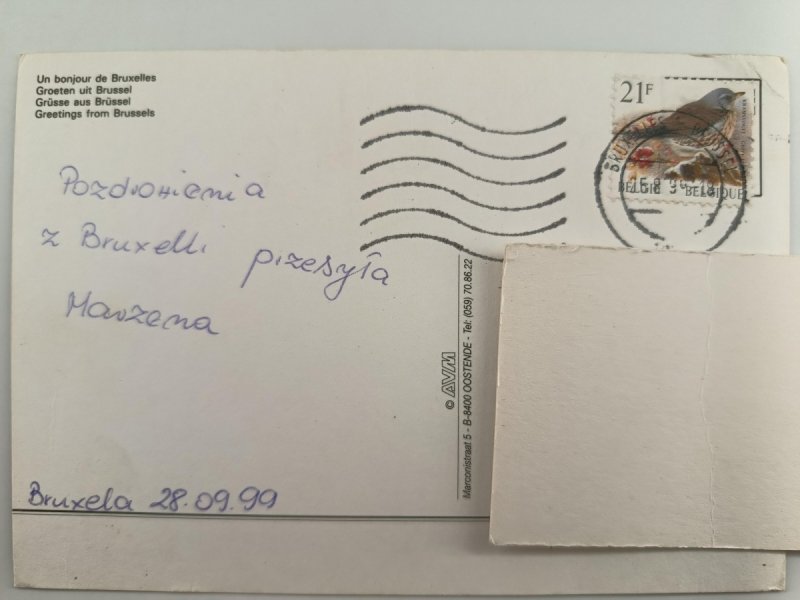 Un bonjour de Bruxelles
Groeten uit Brussel
Grüsse aus Brüssel
Greetings from Brussels
21F
BELGIË BELGIQUE
Pozdrowienia
z Bruxelli przesyła
Marzena
© AVM
Marconistraat 5 - B-8400 OOSTENDE - Tel: (059) 70.86.22
Bruxela 28.09.99